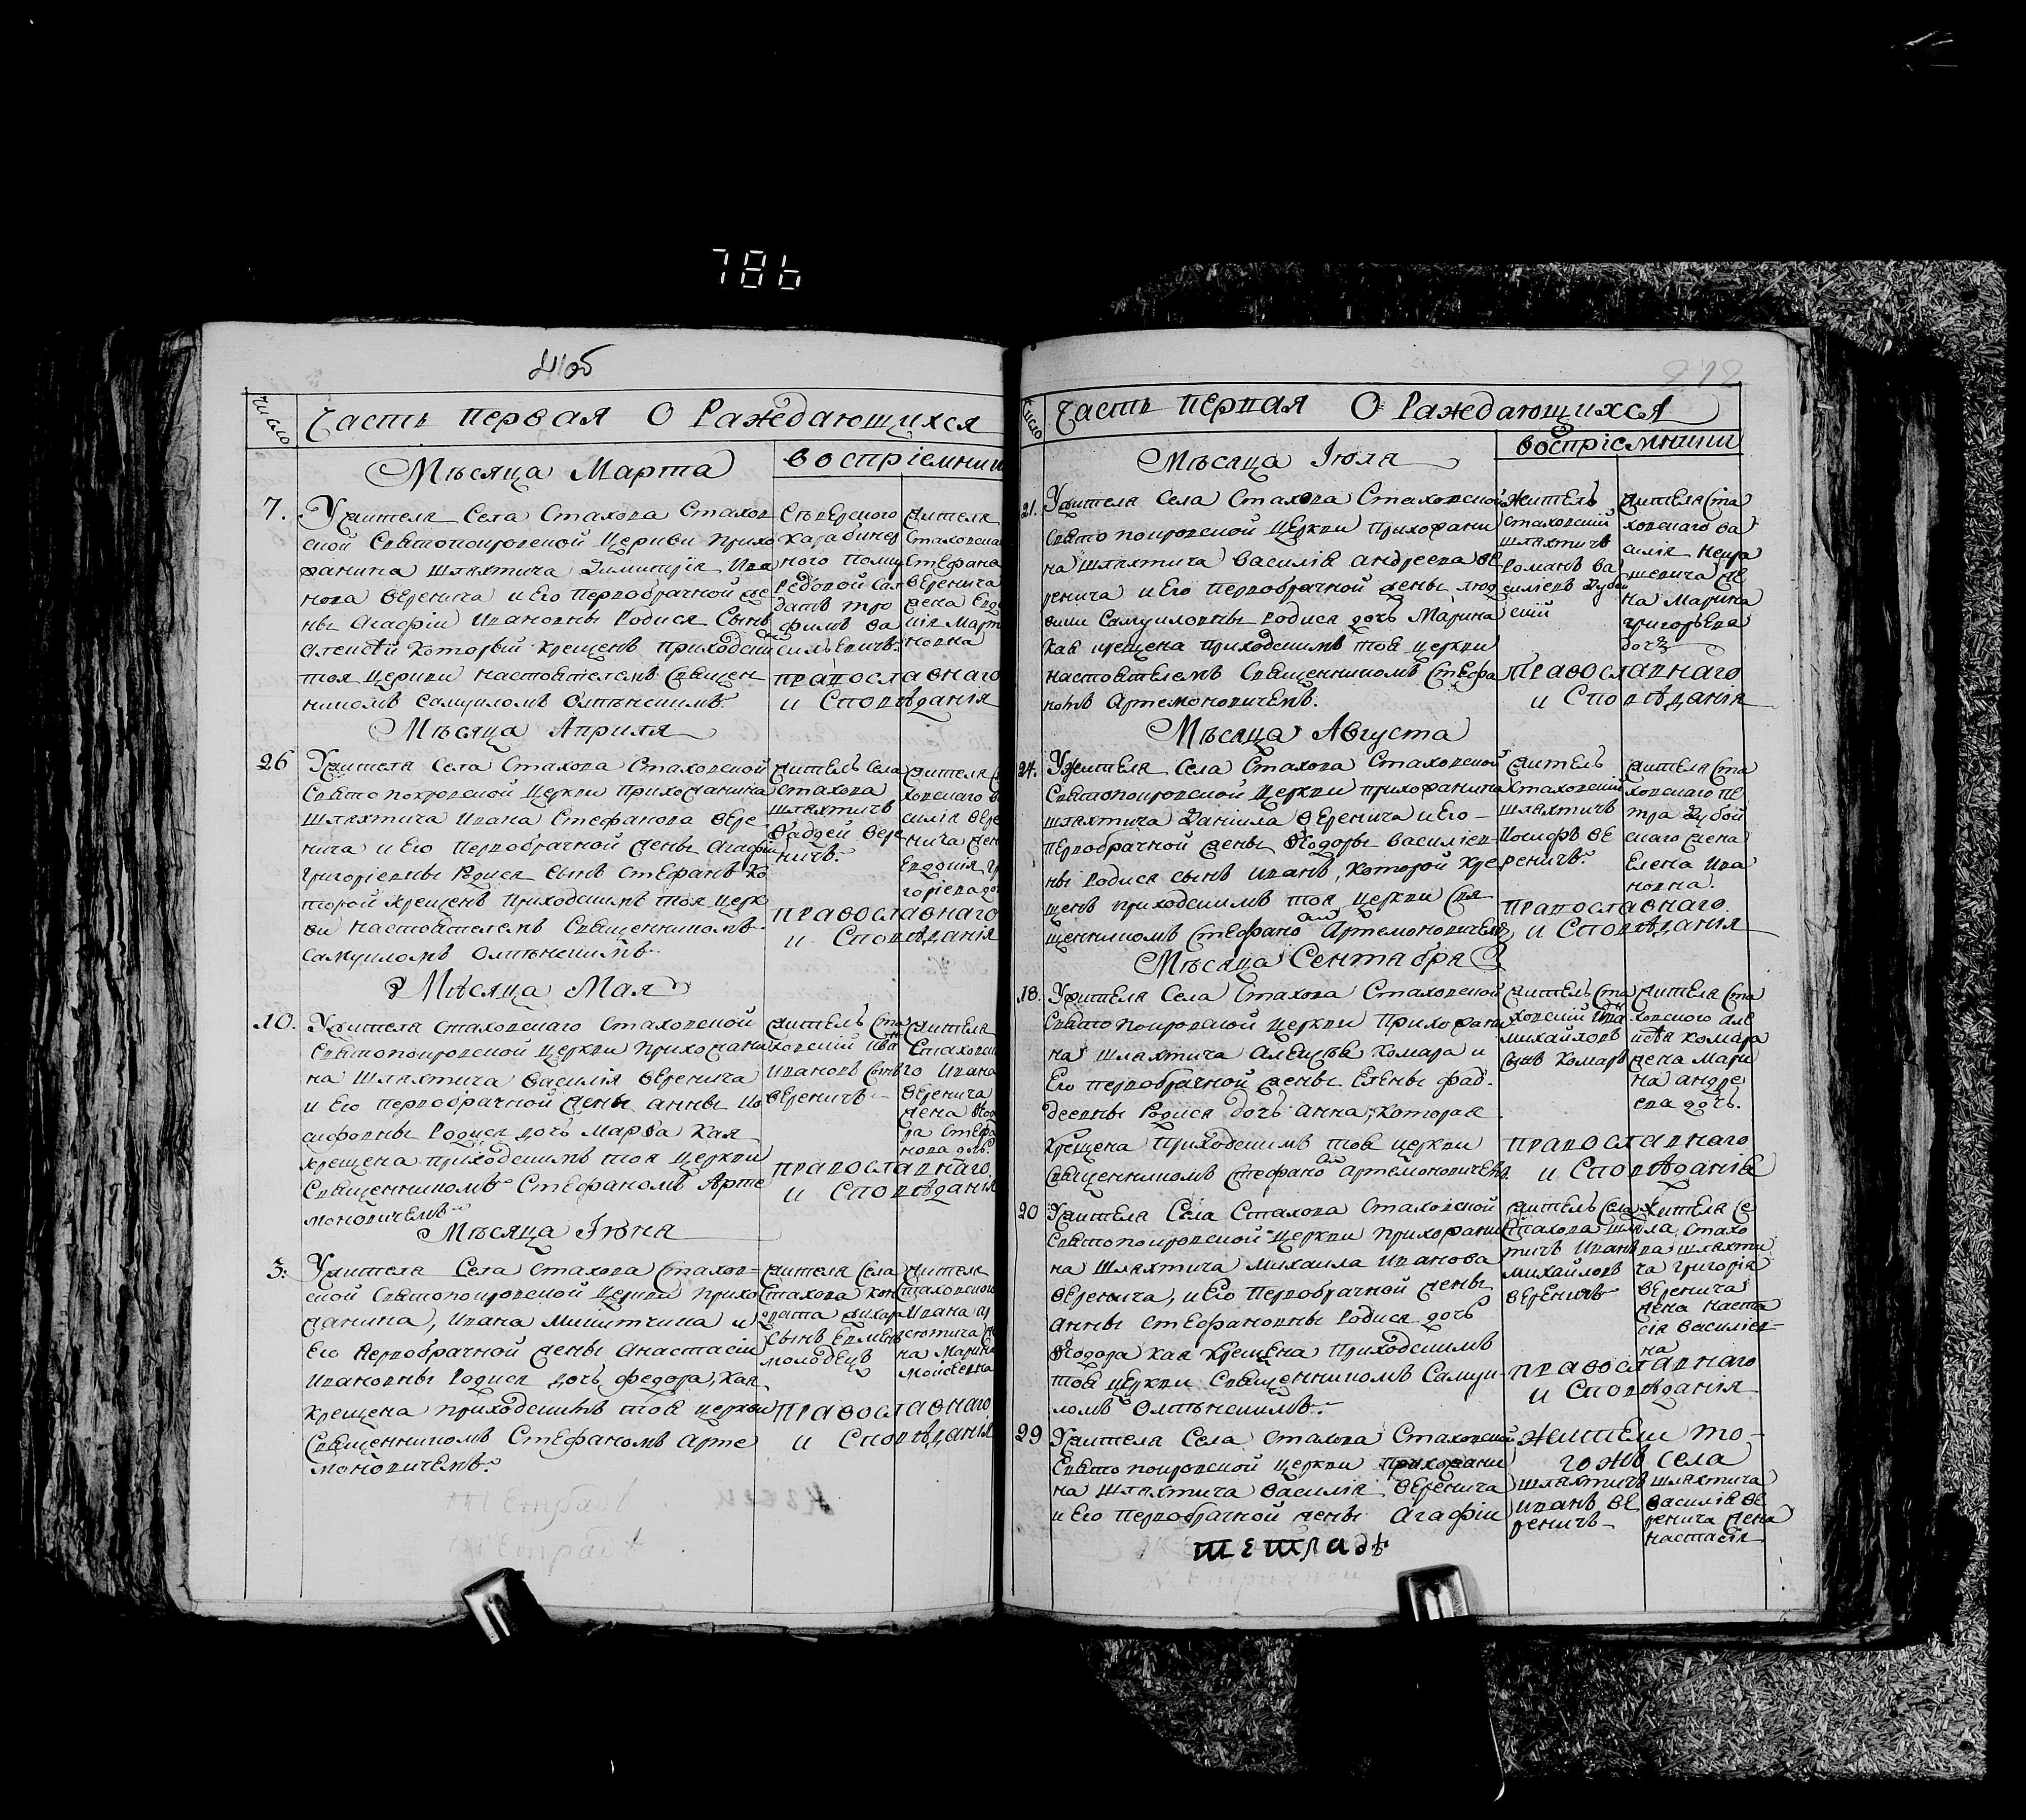 786
41об
Число
Часть первая О Раждающихся
воспріемники
Мѣсяца Марта
7. Ужителя Села Стахова Стахов
ской Святопокровской Церкви Прихо
жанина шляхтича Димитрія Ива
нова Веренича и Его Первобрачной же
ны Агафіи Ивановны Родися Сынъ
Алексѣй Который Крещенъ приходским
тоя Церкви настоятелемъ Священ
никомъ Самуиломъ
Сѣверского
Карабинер
ного полку
рядовой Сал
датъ тро
фимъ Ва
сильевичъ.
жителя
Стаховска
Стефана
Веренича
жена Евдо
кія Март
новна
православнаго
и Споведанія
Мѣсяца Априля
26 Ужителя Села Стахова Стаховской
Святопокровской Церкви Прихожанина
шляхтича Ивана Стефанова Вере-
нича и Его Первобрачной жены Агафіи
Григоріевны Родися Сынъ Стефанъ Ко
торой Крещенъ Приходскимъ тоя Церк
ви настоятелемъ Священникомъ
Самуиломъ
житель Села
Стахова
шляхтичъ
Фаддей Вере
ничъ.
жителя С
ховскаго Ва
силія Вере
нича жен
Евдокія Г
горіева до
православнаго
и Споведанія
Мѣсяца Мая
10. Ужителя Стаховскаго Стаховской
Святопокровской Церкви Прихожани
на шляхтича Василія Веренича
и Его Первобрачной жены Анны Ио
сифовны Родися дочь Марфа Кая
Крещена приходскимъ тоя Церкви
Священникомъ Стефаномъ Арте
моновичемъ
житель Ста
ховскій Ива
Ивановъ Сынъ
Вереничъ
жителя
Стаховск
го Ивана
Веренича
жена Ѳеод
ра Стефа
нова дочь
православнаго
и Споведанія
Мѣсяца Іюня
3. Ужителя Села Стахова Стахов-
ской Святопокровской Церкви Прихо
жанина, Ивана Микитчина и
Его Первобрачной жены Анастасіи
Ивановны Родися дочь федора, Кая
Крещена приходскимъ тоя Церкви
Священникомъ Стефаномъ Арте
моновичемъ.
жителя Села
Стахова Кон
Сынъ
молодецъ
жителя
Стаховского
Ивана
на Марина
Мойсеевна
православнаго
и Споведанія
212
Число
Часть первая О Раждающихся
воспріемники
Мѣсяца Іюля
21. Ужителя Села Стахова Стаховской
Свято покровской Церкви Прихожани
на шляхтича Василія андреева Ве
ренича и Его Первобрачной жены
Самуиловны Родися дочь Марина
Кая крещена Приходскимъ тоя Церкви
настоятелемъ Священникомъ Стефа
номъ Артемоновичемъ.
Житель
Стаховский
шляхтичъ
Романъ Ва
сильевъ Дубой
ский
жителя Ста
ховскаго Ва
силія
же
на Марина
Григорьева
дочь
православнаго
и Споведанія
Мѣсяца Августа
24. Ужителя Села Стахова Стаховской
Святопокровской Церкви прихожанина
шляхтича Данила Веренича и Его-
Первобрачной жены Ѳеодоры Василіев-
ны Родися сынъ Иванъ, Которой Кре
щенъ приходскимъ тоя Церкви Свя
щенникомъ Стефаномъ Артемоновичемъ
житель
Стаховский
шляхтичъ
Иосифъ Ве
реничъ.
жителя Ста
ховскаго Пе
тра Дубой
скаго жена
Елена Ива
новна.
православнаго
и Споведанія
Мѣсяца Сентября
18. Ужителя Села Стахова Стаховской
Святопокровской Церкви Прихожани
на шляхтича Алексѣя Комара и
Его первобрачной жены Елены Фад-
деевны Родися дочь Анна, Которая
Крещена Приходскимъ тоя Церкви
Священникомъ Стефаномъ Артемоновичемъ.
житель Ста
ховский Ива
Михайловъ
Сынъ Комаръ
жителя Ста
ховского Але
ксѣя Комара
жена Мари
на андре
ева дочь.
православнаго
и Споведанія
20 Ужителя Села Стахова Стаховской
Святопокровской Церкви Прихожани
на шляхтича Михаила Иванова
Веренича, и Его Первобрачной жены
Анны Стефановны Родися дочь
Ѳеодора Кая Крещена Приходскимъ
тоя Церкви Священникомъ Самуи-
ломъ
житель Села
Стахова шлях
тичъ Иванъ
Михайловъ
Вереничъ
Жителя Се
ла, Стахо
ва шляхти
ча Григорія
Веренича
жена Наста
сія Василіев-
на
православнаго
и Споведанія
29 Ужителя Села Стахова Стаховской
Святопокровской Церкви Прихожани
на шляхтича Василія Веренича
и Его Первобрачной жены Агафіи
Жители то-
гожъ Села
шляхтичъ
Иванъ Ве
реничъ
шляхтича
Василія Ве
ренича жена
Настасія
тетрадь